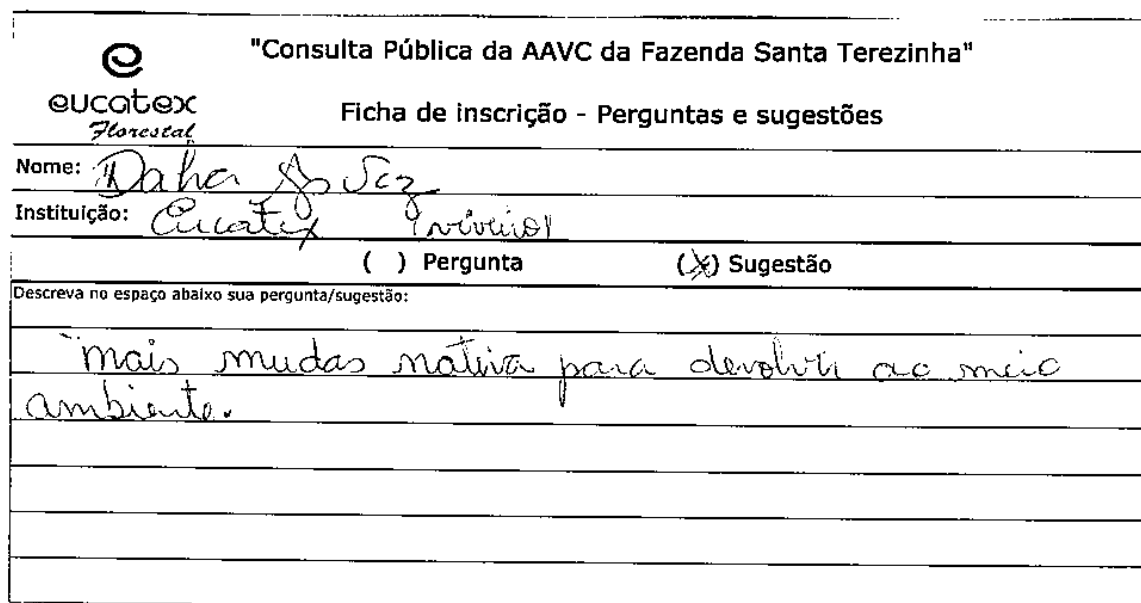 "Consulta Pública da AAVC da Fazenda Santa Terezinha"
eucatex
Florestal
Ficha de inscrição - Perguntas e sugestões
Nome: Daha
Instituição: Eucatex (viveiro)
( ) Pergunta (X) Sugestão
Descreva no espaço abaixo sua pergunta/sugestão:
mais mudas nativa para devolver ao meio
ambiente.